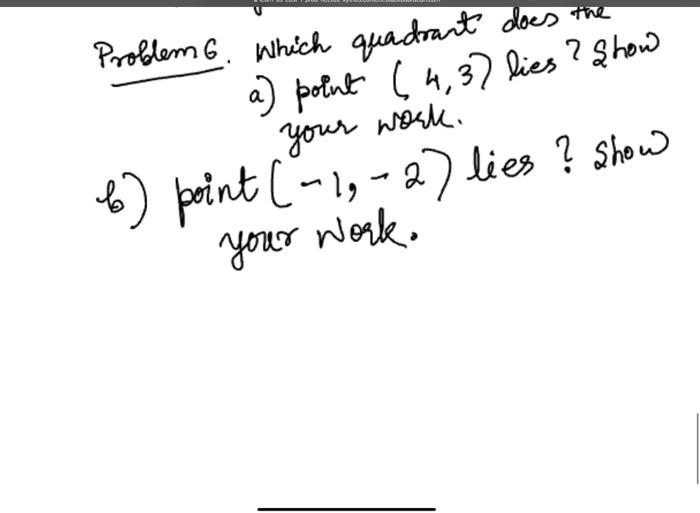 Problem 6. Which quadrant does the
a) point (4,3) lies? Show
your work.
b) point (-1,-2) lies? Show
your work.